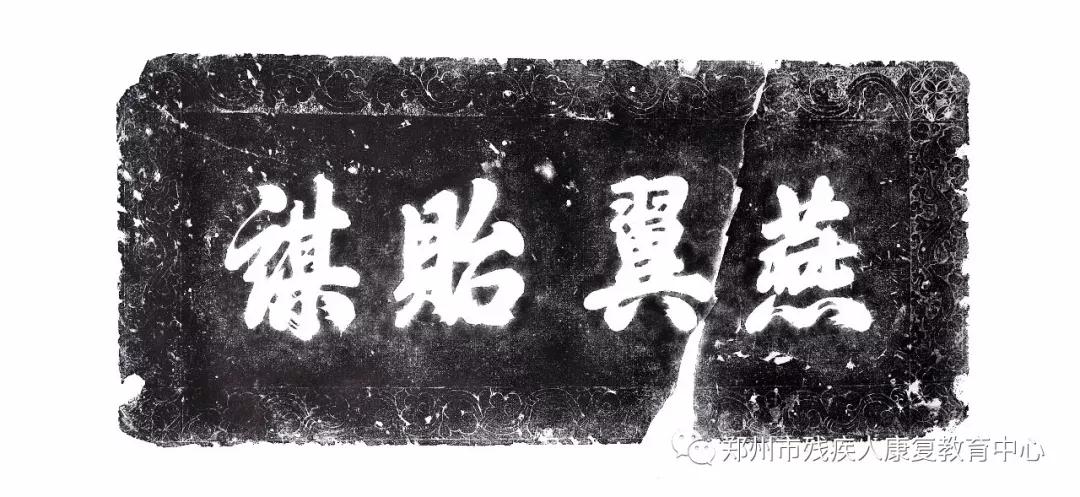 燕翼貽謀
郑州市残疾人康复教育中心